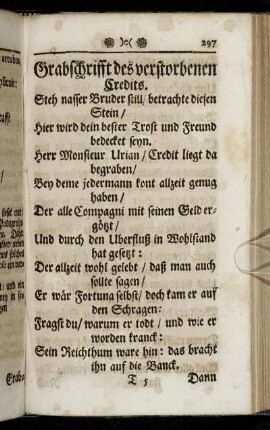 )o( 297
Grabschrifft des verstorbenen
Credits.
Steh nasser Bruder still / betrachte diesen
Stein /
Hier wird dein bester Trost und Freund
bedecket seyn.
Herr Monsieur Urian / Credit liegt da
begraben /
Bey deme jedermann kont allzeit genug
haben /
Der alle Compagni mit seinen Geld er-
götzt /
Und durch den Uberfluß in Wohlstand
hat gesetzt :
Der allzeit wohl gelebt / daß man auch
sollte sagen /
Er wär Fortuna selbst / doch kam er auf
den Schragen:
Fragst du / warum er todt / und wie er
worden kranck:
Sein Reichthum ware hin : das bracht
ihn auf die Banck.
T 5 Dann